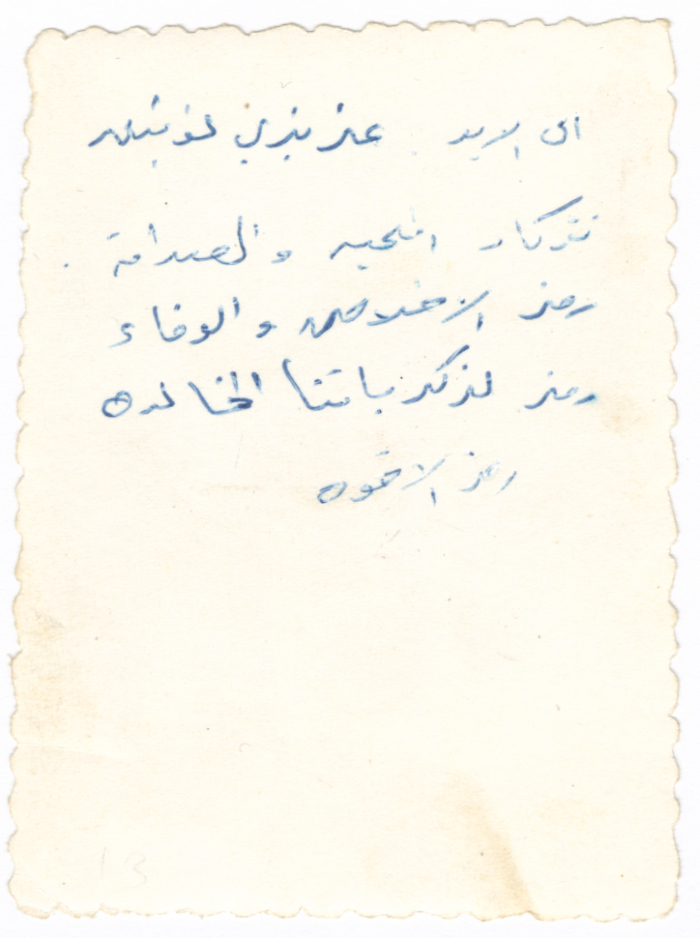 الى الابد عزيزي
تذكار المحبه والصداقة
رمز الاخلاص والوفاء
رمز لذكرياتنا الخالده
رمز الاخوه
13